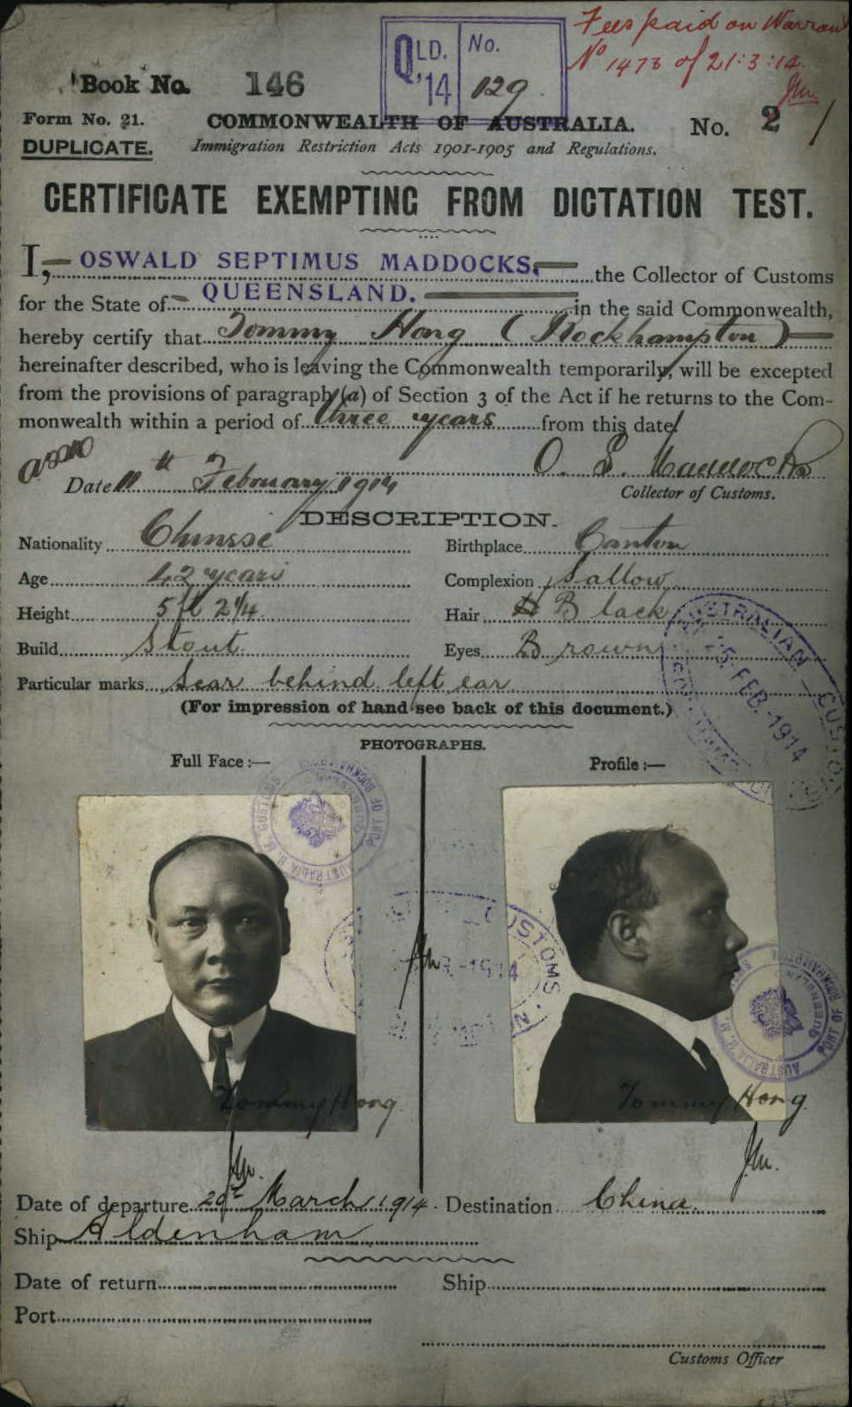 Fees paid on Warrant
No 1478 of 21:3:14.
QLD. '14 No. 129
Book No. 146
Form No. 21. COMMONWEALTH OF AUSTRALIA. No. 2 /
DUPLICATE. Immigration Restriction Acts 1901-1905 and Regulations.
CERTIFICATE EXEMPTING FROM DICTATION TEST.
I, OSWALD SEPTIMUS MADDOCKS, the Collector of Customs
for the State of QUEENSLAND. in the said Commonwealth,
hereby certify that Tommy Hong (Rockhampton)
hereinafter described, who is leaving the Commonwealth temporarily, will be excepted
from the provisions of paragraph (a) of Section 3 of the Act if he returns to the Com-
monwealth within a period of three years from this date.
O. S. Maddocks
Date 11th February 1914 Collector of Customs.
DESCRIPTION.
Nationality Chinese Birthplace Canton
Age 42 years Complexion Sallow
Height 5 ft 2 1/4 Hair Black
Build Stout Eyes Brown
Particular marks Scar behind left ear
(For impression of hand see back of this document.)
AUSTRALIAN CUSTOMS FEB. 1914
PHOTOGRAPHS.
Full Face :— Profile :—
PORT OF ROCKHAMPTON
CUSTOMS 1914
PORT OF ROCKHAMPTON
Tommy Hong Tommy Hong
Date of departure 29th March 1914. Destination China.
Ship Aldenham
Date of return Ship
Port
Customs Officer